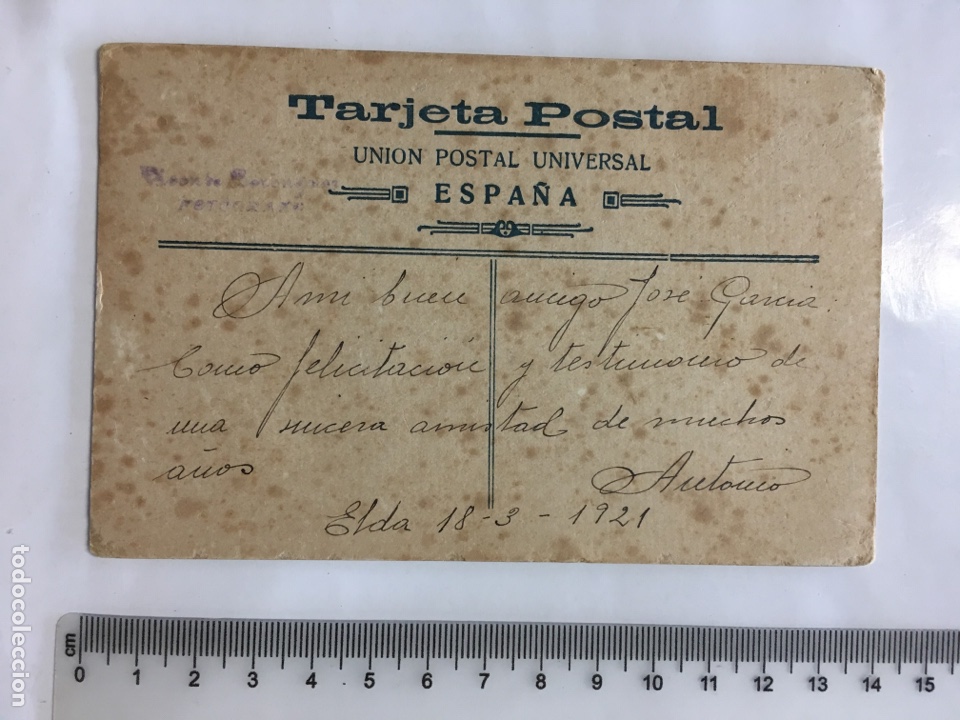 Tarjeta Postal
UNION POSTAL UNIVERSAL
ESPAÑA
A mi buen amigo José Garcia:
Como felicitación y testimonio de
una sincera amistad de muchos
años
Antonio
Elda 18-3-1921
cm
0 1 2 3 4 5 6 7 8 9 10 11 12 13 14 15
todocoleccion